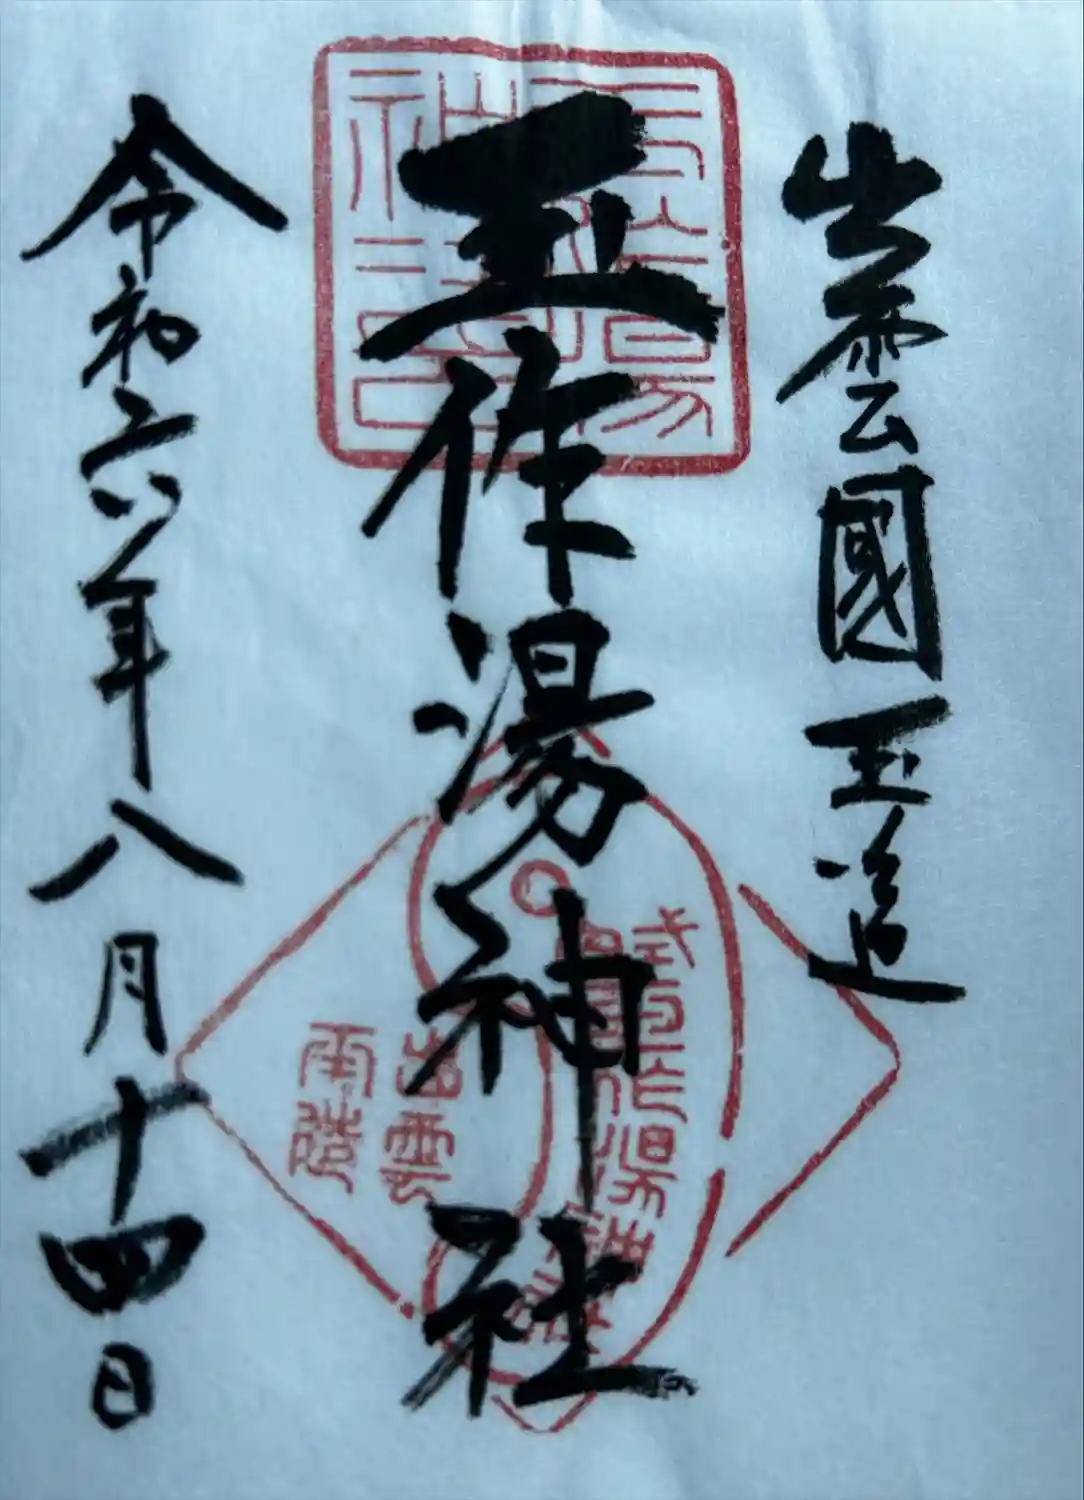 出雲國玉造
玉作湯神社
令和六年八月十四日
玉作湯
神社印
式内
玉作湯神社
出雲